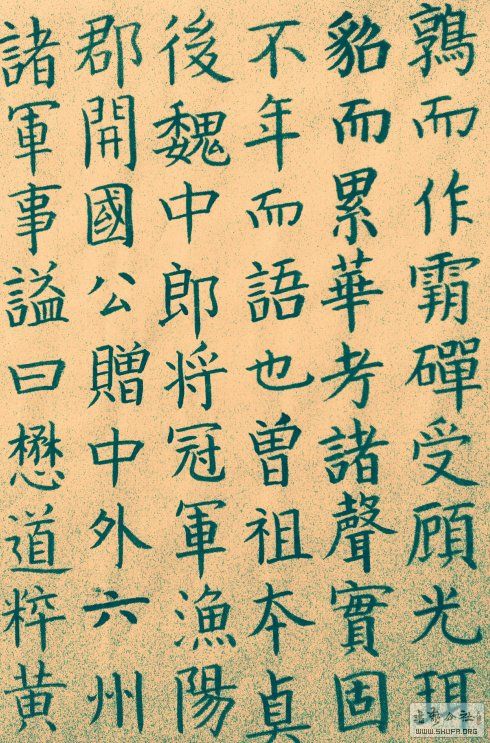 鶉而作霸磾受顧光珥
貂而累華考諸聲實固
不年而語也曽祖本貞
後魏中郎将冠軍漁陽
郡開國公贈中外六州
諸軍事謚曰懋道粹黄
WWW.SHUFA.ORG